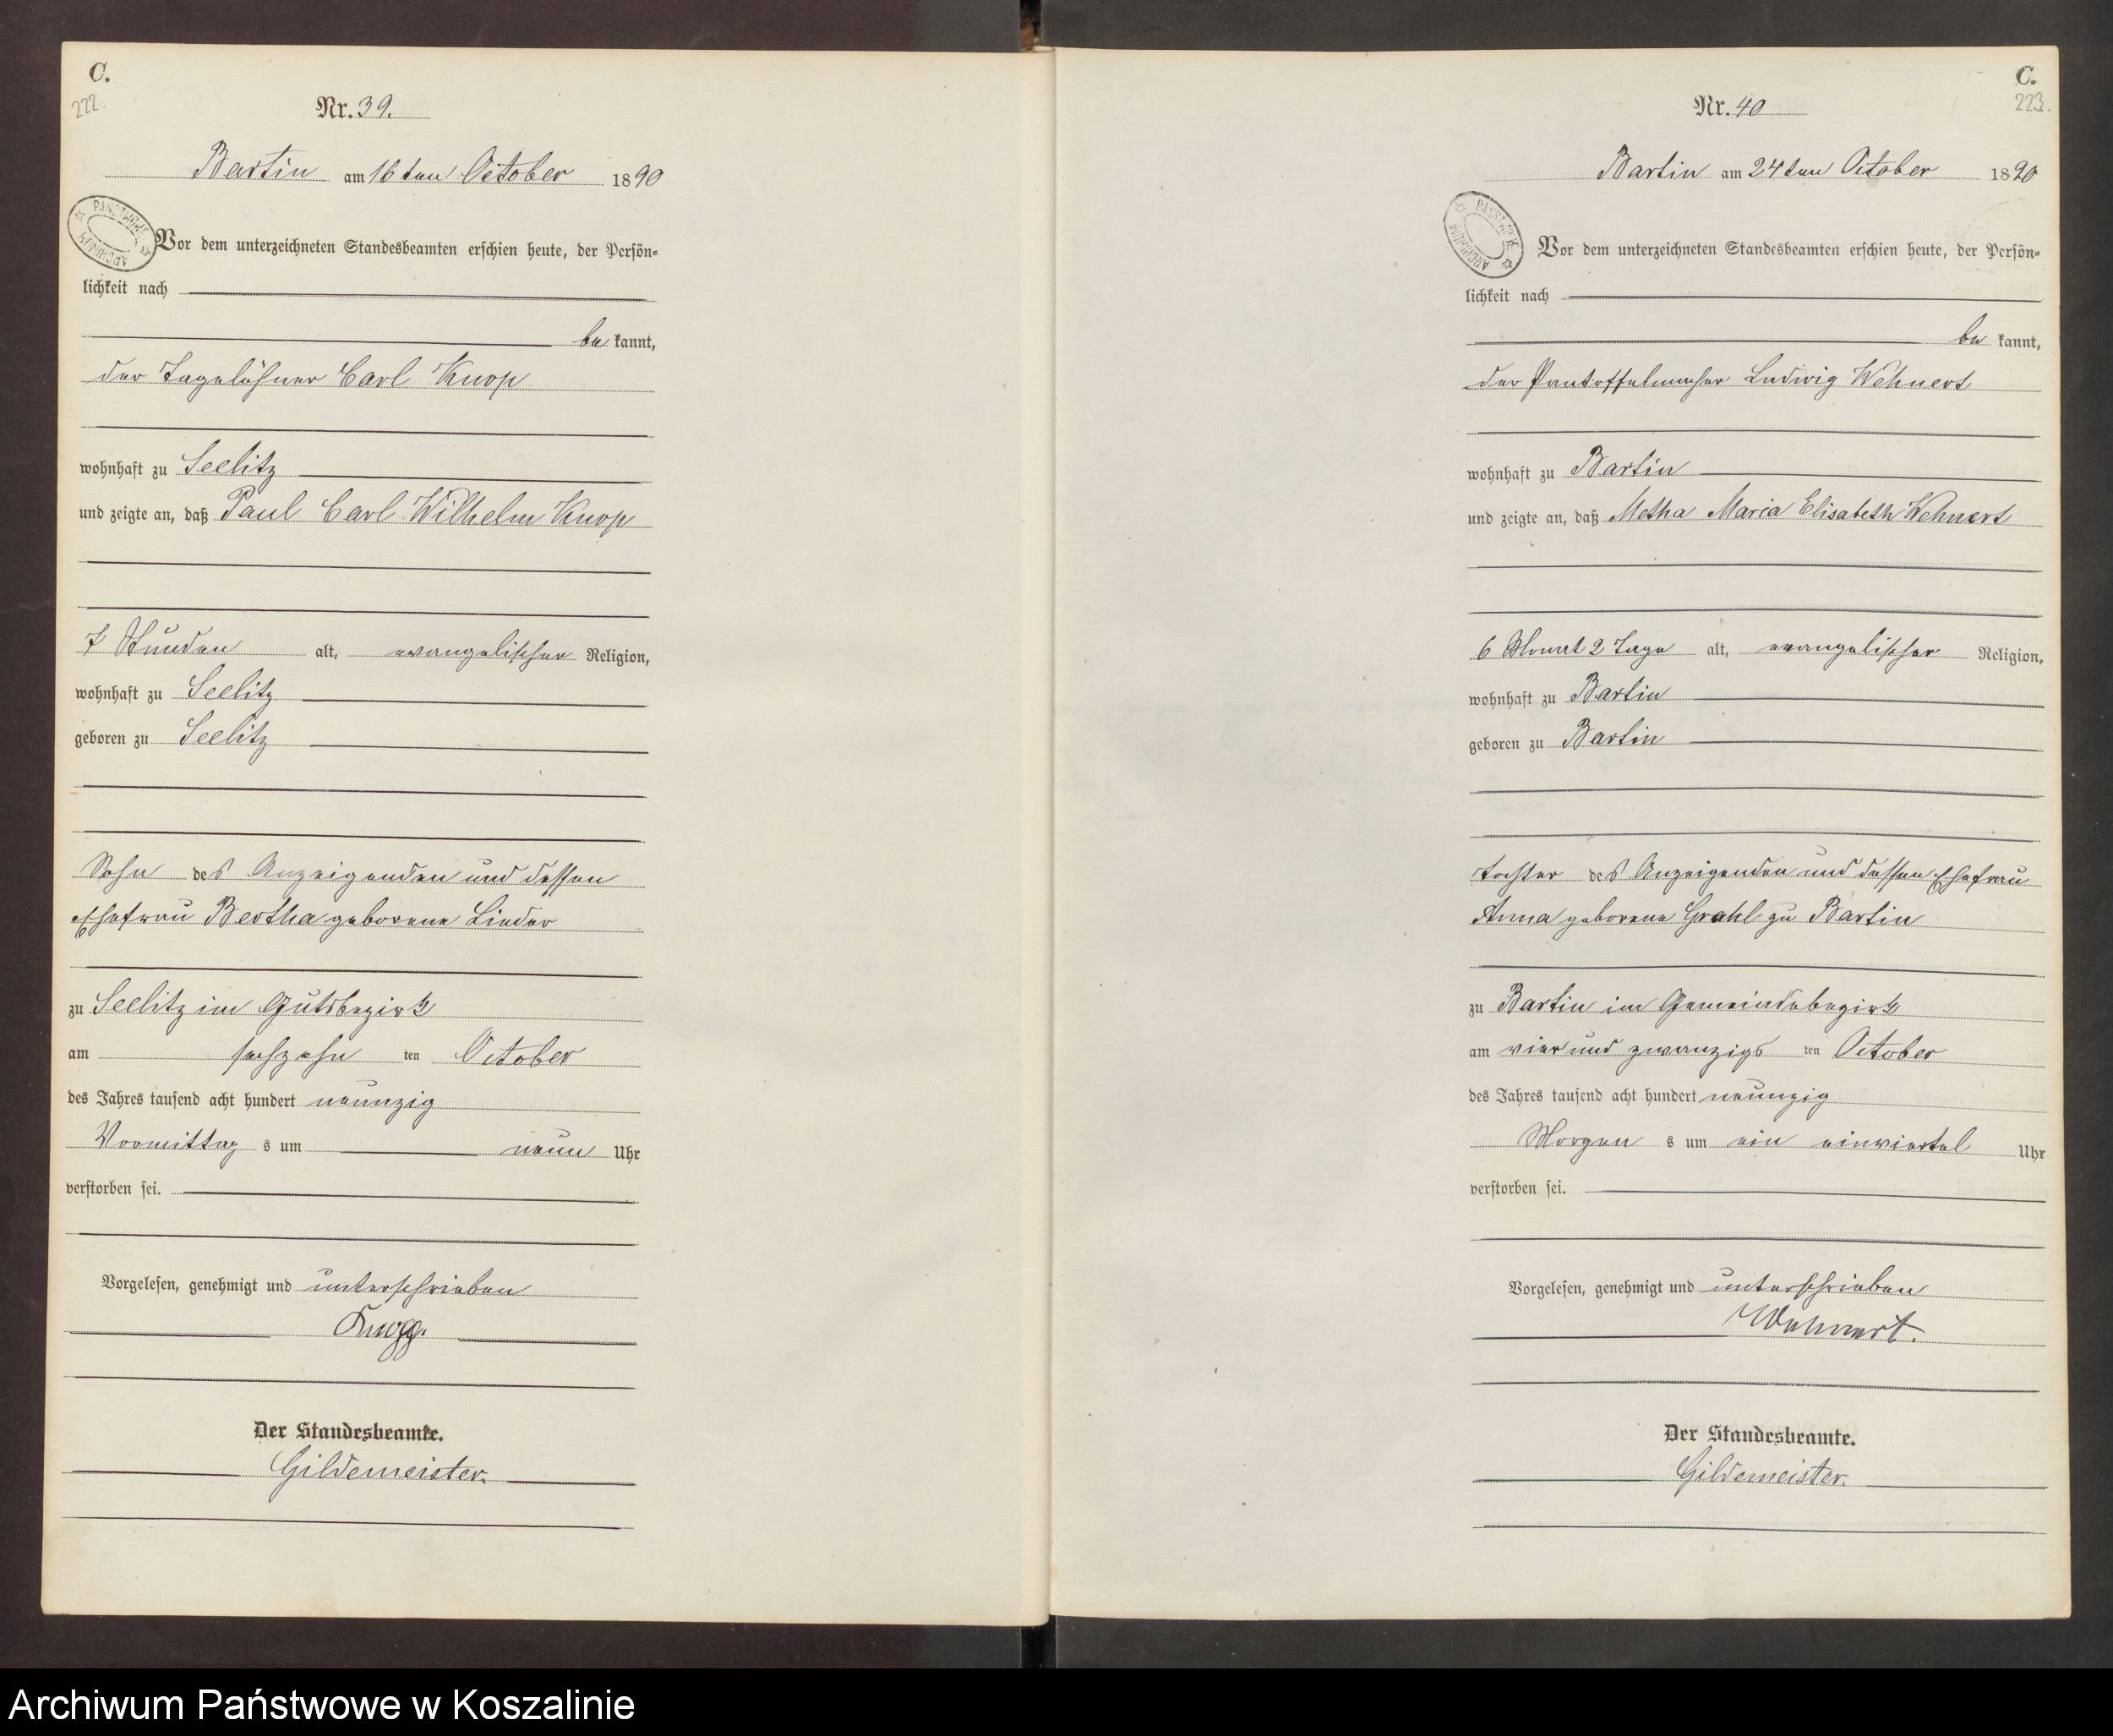 C.
222.
Nr. 39.
Bartin am 16ten October 1890
Vor dem unterzeichneten Standesbeamten erschien heute, der Persön-
lichkeit nach
be kannt,
der Tagelöhner Carl Knop
wohnhaft zu Seelitz
und zeigte an, daß Paul Carl Wilhelm Knop
7 Stunden alt, evangelischer Religion,
wohnhaft zu Seelitz
geboren zu Seelitz
Sohn des Anzeigenden und dessen
Ehefrau Bertha geborene Linder
zu Seelitz im Gutsbezirk
am sechzehn ten October
des Jahres tausend acht hundert neunzig
Vormittag s um neun Uhr
verstorben sei.
Vorgelesen, genehmigt und unterschrieben
Der Standesbeamte.
Gildemeister.
C.
223.
Nr. 40
Bartin am 24ten October 1890
Vor dem unterzeichneten Standesbeamten erschien heute, der Persön-
lichkeit nach
be kannt,
der Pantoffelmacher Ludwig Wehnert
wohnhaft zu Bartin
und zeigte an, daß Metha Maria Elisabeth Wehnert
6 Monat 2 Tage alt, evangelischer Religion,
wohnhaft zu Bartin
geboren zu Bartin
Tochter des Anzeigenden und dessen Ehefrau
Anna geborene Grahl zu Bartin
zu Bartin im Gemeindebezirk
am vier und zwanzigs ten October
des Jahres tausend acht hundert neunzig
Morgen s um ein einviertel Uhr
verstorben sei.
Vorgelesen, genehmigt und unterschrieben
Wehnert.
Der Standesbeamte.
Gildemeister.
Archiwum Państwowe w Koszalinie